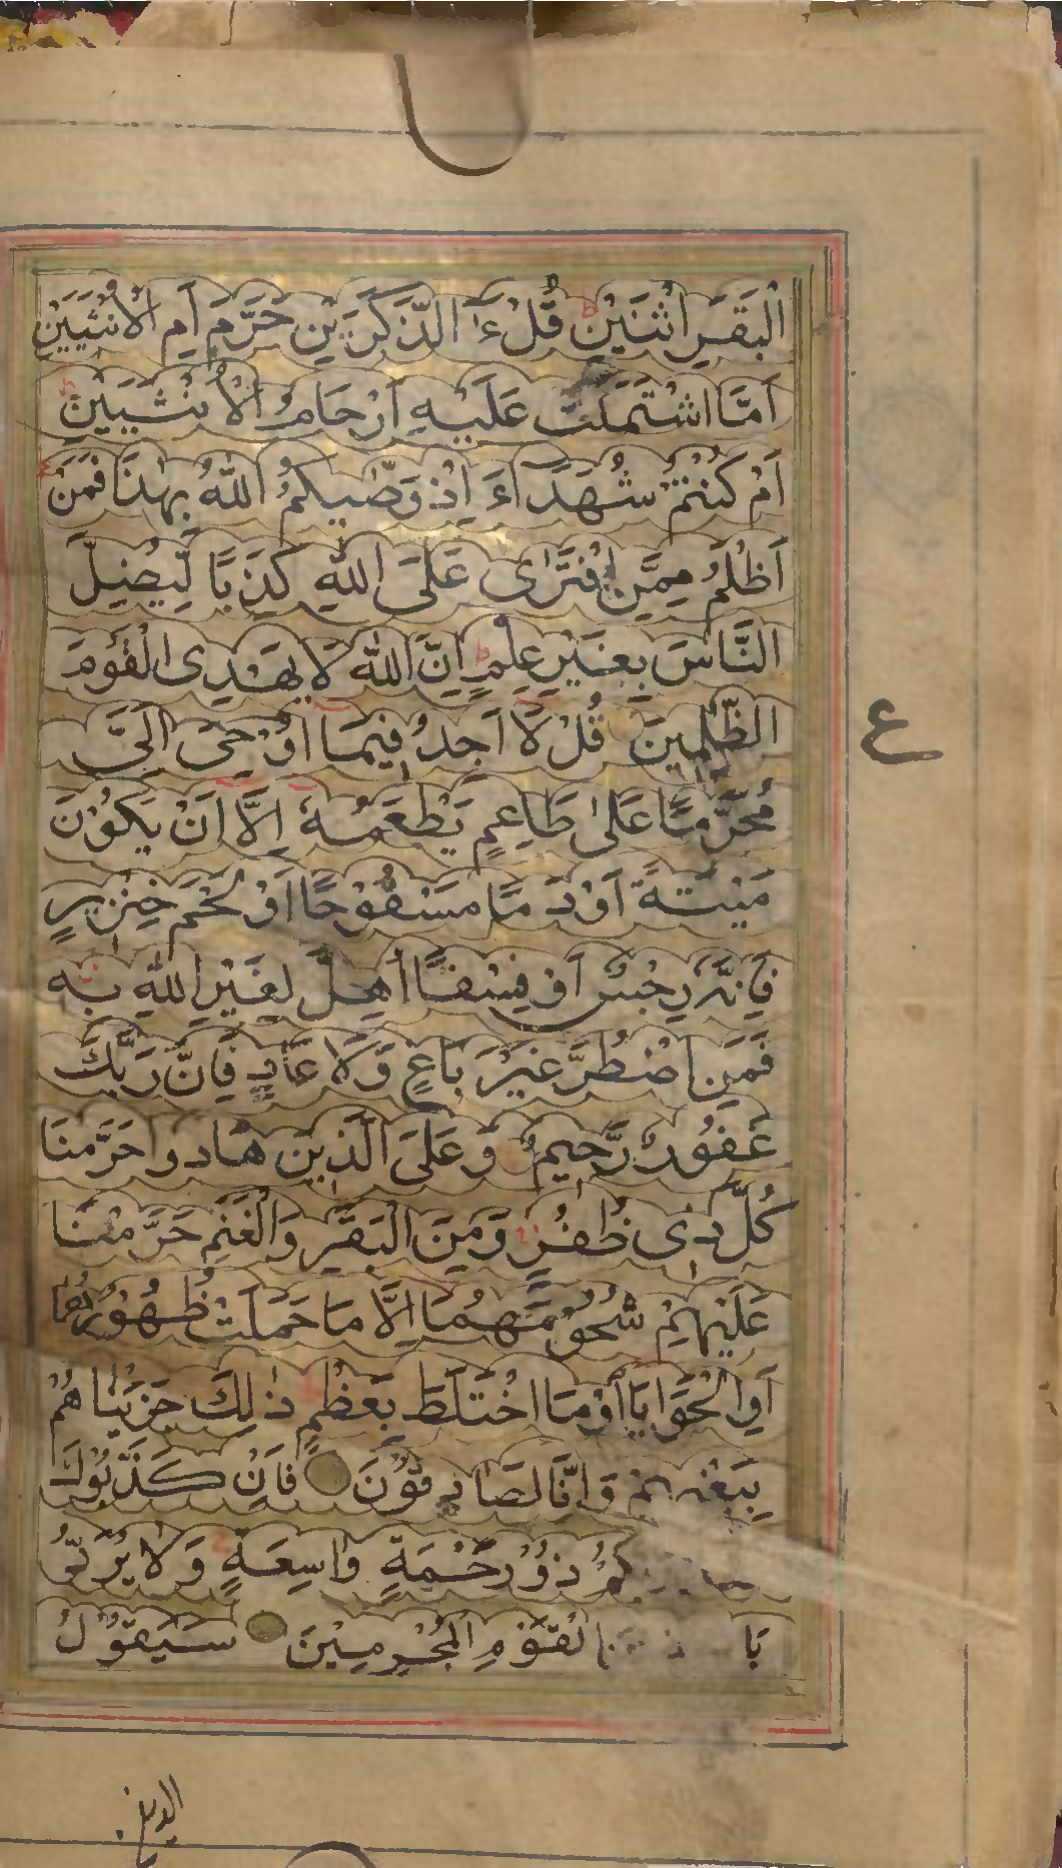 الْبَقَرِ اثْنَيْنِ ط قُلْ ءَآ الذَّكَرَيْنِ حَرَّمَ اَمِ الْاُنْثَيَيْنِ
اَمَّا اشْتَمَلَتْ عَلَيْهِ اَرْحَامُ الْاُنْثَيَيْنِ
اَمْ كُنْتُمْ شُهَدَآءَ اِذْ وَصّٰيكُمُ اللّٰهُ بِهٰذَا فَمَنْ
اَظْلَمُ مِمَّنِ افْتَرٰى عَلَى اللّٰهِ كَذِبًا لِّيُضِلَّ
النَّاسَ بِغَيْرِ عِلْمٍ ط اِنَّ اللّٰهَ لَا يَهْدِى الْقَوْمَ
الظّٰلِمِيْنَ قُلْ لَآ اَجِدُ فِيْمَآ اُوْحِىَ اِلَىَّ
ع
مُحَرَّمًا عَلٰى طَاعِمٍ يَّطْعَمُهٗٓ اِلَّآ اَنْ يَّكُوْنَ
مَيْتَةً اَوْ دَمًا مَّسْفُوْحًا اَوْ لَحْمَ خِنْزِيْرٍ
فَاِنَّهٗ رِجْسٌ اَوْ فِسْقًا اُهِلَّ لِغَيْرِ اللّٰهِ بِهٖ
فَمَنِ اضْطُرَّ غَيْرَ بَاغٍ وَّلَا عَادٍ فَاِنَّ رَبَّكَ
غَفُوْرٌ رَّحِيْمٌ وَعَلَى الَّذِيْنَ هَادُوا حَرَّمْنَا
كُلَّ ذِى ظُفُرٍ وَمِنَ الْبَقَرِ وَالْغَنَمِ حَرَّمْنَا
عَلَيْهِمْ شُحُوْمَهُمَآ اِلَّا مَا حَمَلَتْ ظُهُوْرُهُمَا
اَوِ الْحَوَايَآ اَوْ مَا اخْتَلَطَ بِعَظْمٍ ذٰلِكَ جَزَيْنٰاهُمْ
بِبَغْيِهِمْ وَاِنَّا لَصَادِقُوْنَ فَاِنْ كَذَّبُوْكَ
ذُوْ رَحْمَةٍ وَاسِعَةٍ وَلَا يُرَدُّ
الْقَوْمِ الْمُجْرِمِيْنَ سَيَقُوْلُ
الذين